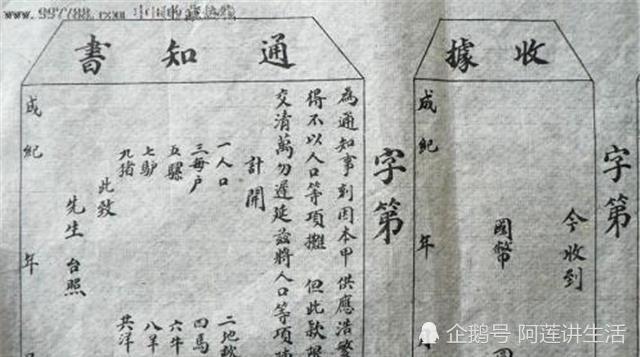 www.997788.com 中国收藏热线
收據
字第
今收到
國幣
成紀 年
字第
通知書
為通知事到因本甲供應浩繁
得不以人口等項攤 但此款限
交清萬勿遲延茲將人口等項
計開
一人口 二地
三每户 四馬
五騾 六牛
七驴 八羊
九猪 共洋
此致
先生台照
成紀 年
企鹅号 阿莲讲生活